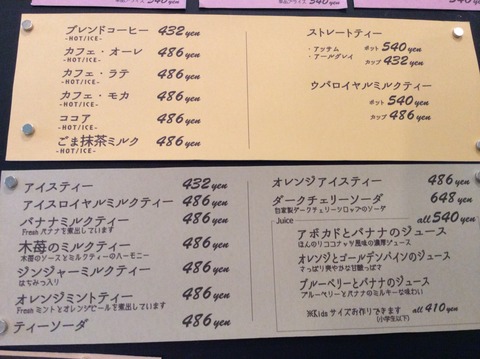 ブレンドコーヒー 432yen
-HOT/ICE-
カフェ・オーレ 486yen
-HOT/ICE-
カフェ・ラテ 486yen
-HOT/ICE-
カフェ・モカ 486yen
-HOT/ICE-
ココア 486yen
-HOT/ICE-
ごま抹茶ミルク 486yen
-HOT/ICE-
ストレートティー
・アッサム ポット 540yen
・アールグレイ カップ 432yen
ウバロイヤルミルクティー
ポット 540yen
カップ 486yen
アイスティー 432yen
アイスロイヤルミルクティー 486yen
バナナミルクティー 486yen
Fresh バナナを煮出しています
木苺のミルクティー 486yen
木苺のソースとミルクティーのハーモニー
ジンジャーミルクティー 486yen
はちみつ入り
オレンジミントティー 486yen
Fresh ミントとオレンジピールを煮出しています
ティーソーダ 486yen
オレンジアイスティー 486yen
ダークチェリーソーダ 648yen
自家製ダークチェリーシロップのソーダ
Juice all 540yen
アボカドとバナナのジュース
ほんのりココナッツ風味の濃厚ジュース
オレンジとゴールデンパインのジュース
さっぱり爽やかな甘酸っぱさ
ブルーベリーとバナナのジュース
ブルーベリーとバナナのミルキーな味わい
※Kids サイズお作りできます all 410yen
(小学生以下)